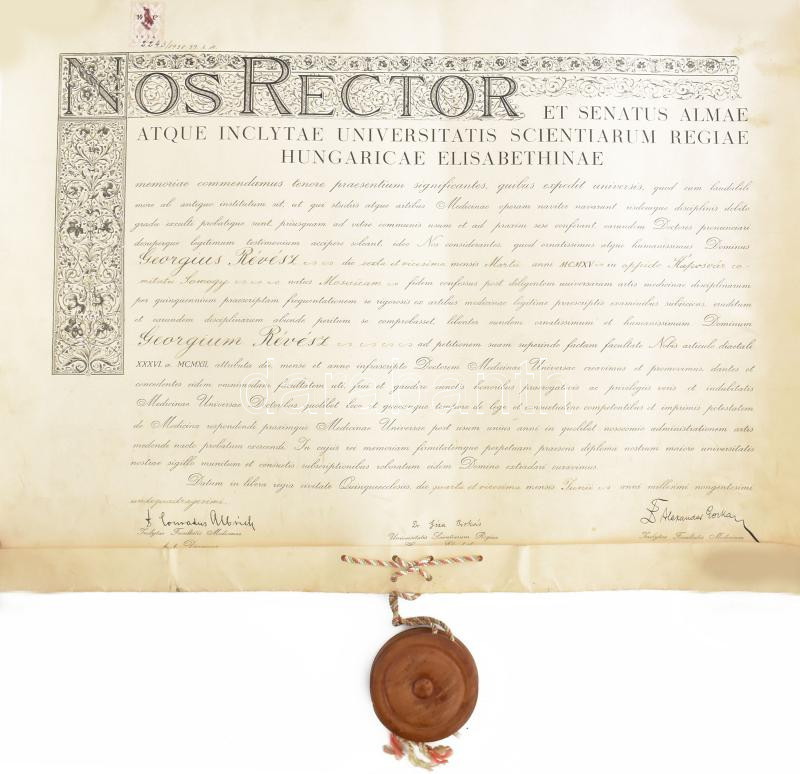 2243/1938-39. s. A.
NOS RECTOR ET SENATUS ALMAE
ATQUE INCLYTAE UNIVERSITATIS SCIENTIARUM REGIAE
HUNGARICAE ELISABETHINAE
memoriae commendamus tenore praesentium significantes, quibus expedit universis, quod cum laudabili
more ab antiquo institutum sit, ut qui studiis atque artibus Medicinae operam naviter navarunt iisdemque disciplinis debito
gradu exculti probatique sunt, priusquam ad vitae communis usum et ad praxim sese conferant, earundem Doctores pronunciari
denuperque legitimum testimonium accipere soleant, ideo Nos considerantes, quod ornatissimus atque humanissimus Dominus
Georgius Révész die sexta et vicesima mensis Martii anni MCMXV in oppido Kaposvár co-
mitatu Somogy natus Mosaicam fidem confessus post diligentem universarum artis medicinae disciplinarum
per quinquennium praescriptam frequentationem se rigorosis ex artibus medicinae legitime praescriptis examinibus subiiciens, eruditum
et earundem disciplinarum abunde peritum se comprobasset, libenter eundem ornatissimum et humanissimum Dominum
Georgium Révész ad petitionem suam superinde factam facultate Nobis articulo diaetali
XXXVI. a. MCMXII. attributa die, mense et anno infrascripto Doctorem Medicinae Universae creavimus et promovimus dantes et
concedentes eidem omnimodam facultatem uti, frui et gaudere cunctis honoribus praerogativis ac privilegiis veris et indubitatis
Medicinae Universae Doctoribus quolibet loco et quocunque tempore de lege et consuetudine competentibus et imprimis potestatem
de Medicina respondendi praximque Medicinae Universae post usum unius anni in quolibet nosocomio administrationem artis
medendi nacto probatum exercendi. In cujus rei memoriam firmitatemque perpetuam praesens diploma nostrum maiore universitatis
nostrae sigillo munitum et consuetis subscriptionibus roboratum eidem Domino extradari curavimus.
Datum in libera regia civitate Quinqueecclesiis, die quarta et vicesima mensis Junii anni millesimi nongentesimi
undequadragesimi.
Conradus Albrich
Dr. Géza
Alexander Gorka
Inclytae Facultatis Medicinae
Universitatis Scientiarum Regiae
Inclytae Facultatis Medicinae